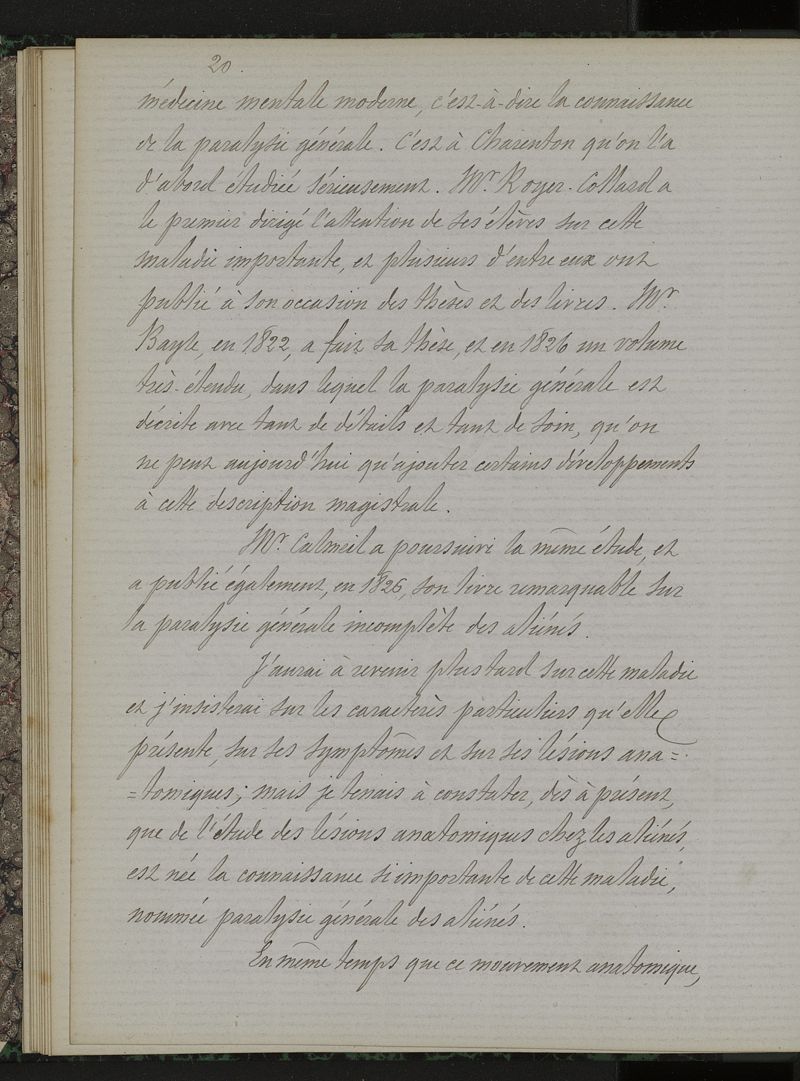 20.
médecine mentale moderne, c'est-à-dire la connaissance
de la paralysie générale. C'est à Charenton qu'on l'a
d'abord étudiée sérieusement. Mr. Royer-Collard a
le premier dirigé l'attention de ses élèves sur cette
maladie importante, et plusieurs d'entre eux ont
publié à son occasion des thèses et des livres. Mr.
Bayle, en 1822, a fait sa thèse, et en 1826 un volume
très-étendu, dans lequel la paralysie générale est
décrite avec tant de détails et tant de soin, qu'on
ne peut aujourd'hui qu'ajouter certains développements
à cette description magistrale.
Mr. Calmeil a poursuivi la même étude, et
a publié également, en 1826, son livre remarquable sur
la paralysie générale incomplète des aliénés.
J'aurai à revenir plus tard sur cette maladie
et j'insisterai sur les caractères particuliers qu'elle
présente, sur ses symptômes et sur ses lésions ana=
=tomiques; mais je tenais à constater, dès à présent,
que de l'étude des lésions anatomiques chez les aliénés,
est née la connaissance si importante de cette maladie,
nommée paralysie générale des aliénés.
En même temps que ce mouvement anatomique,